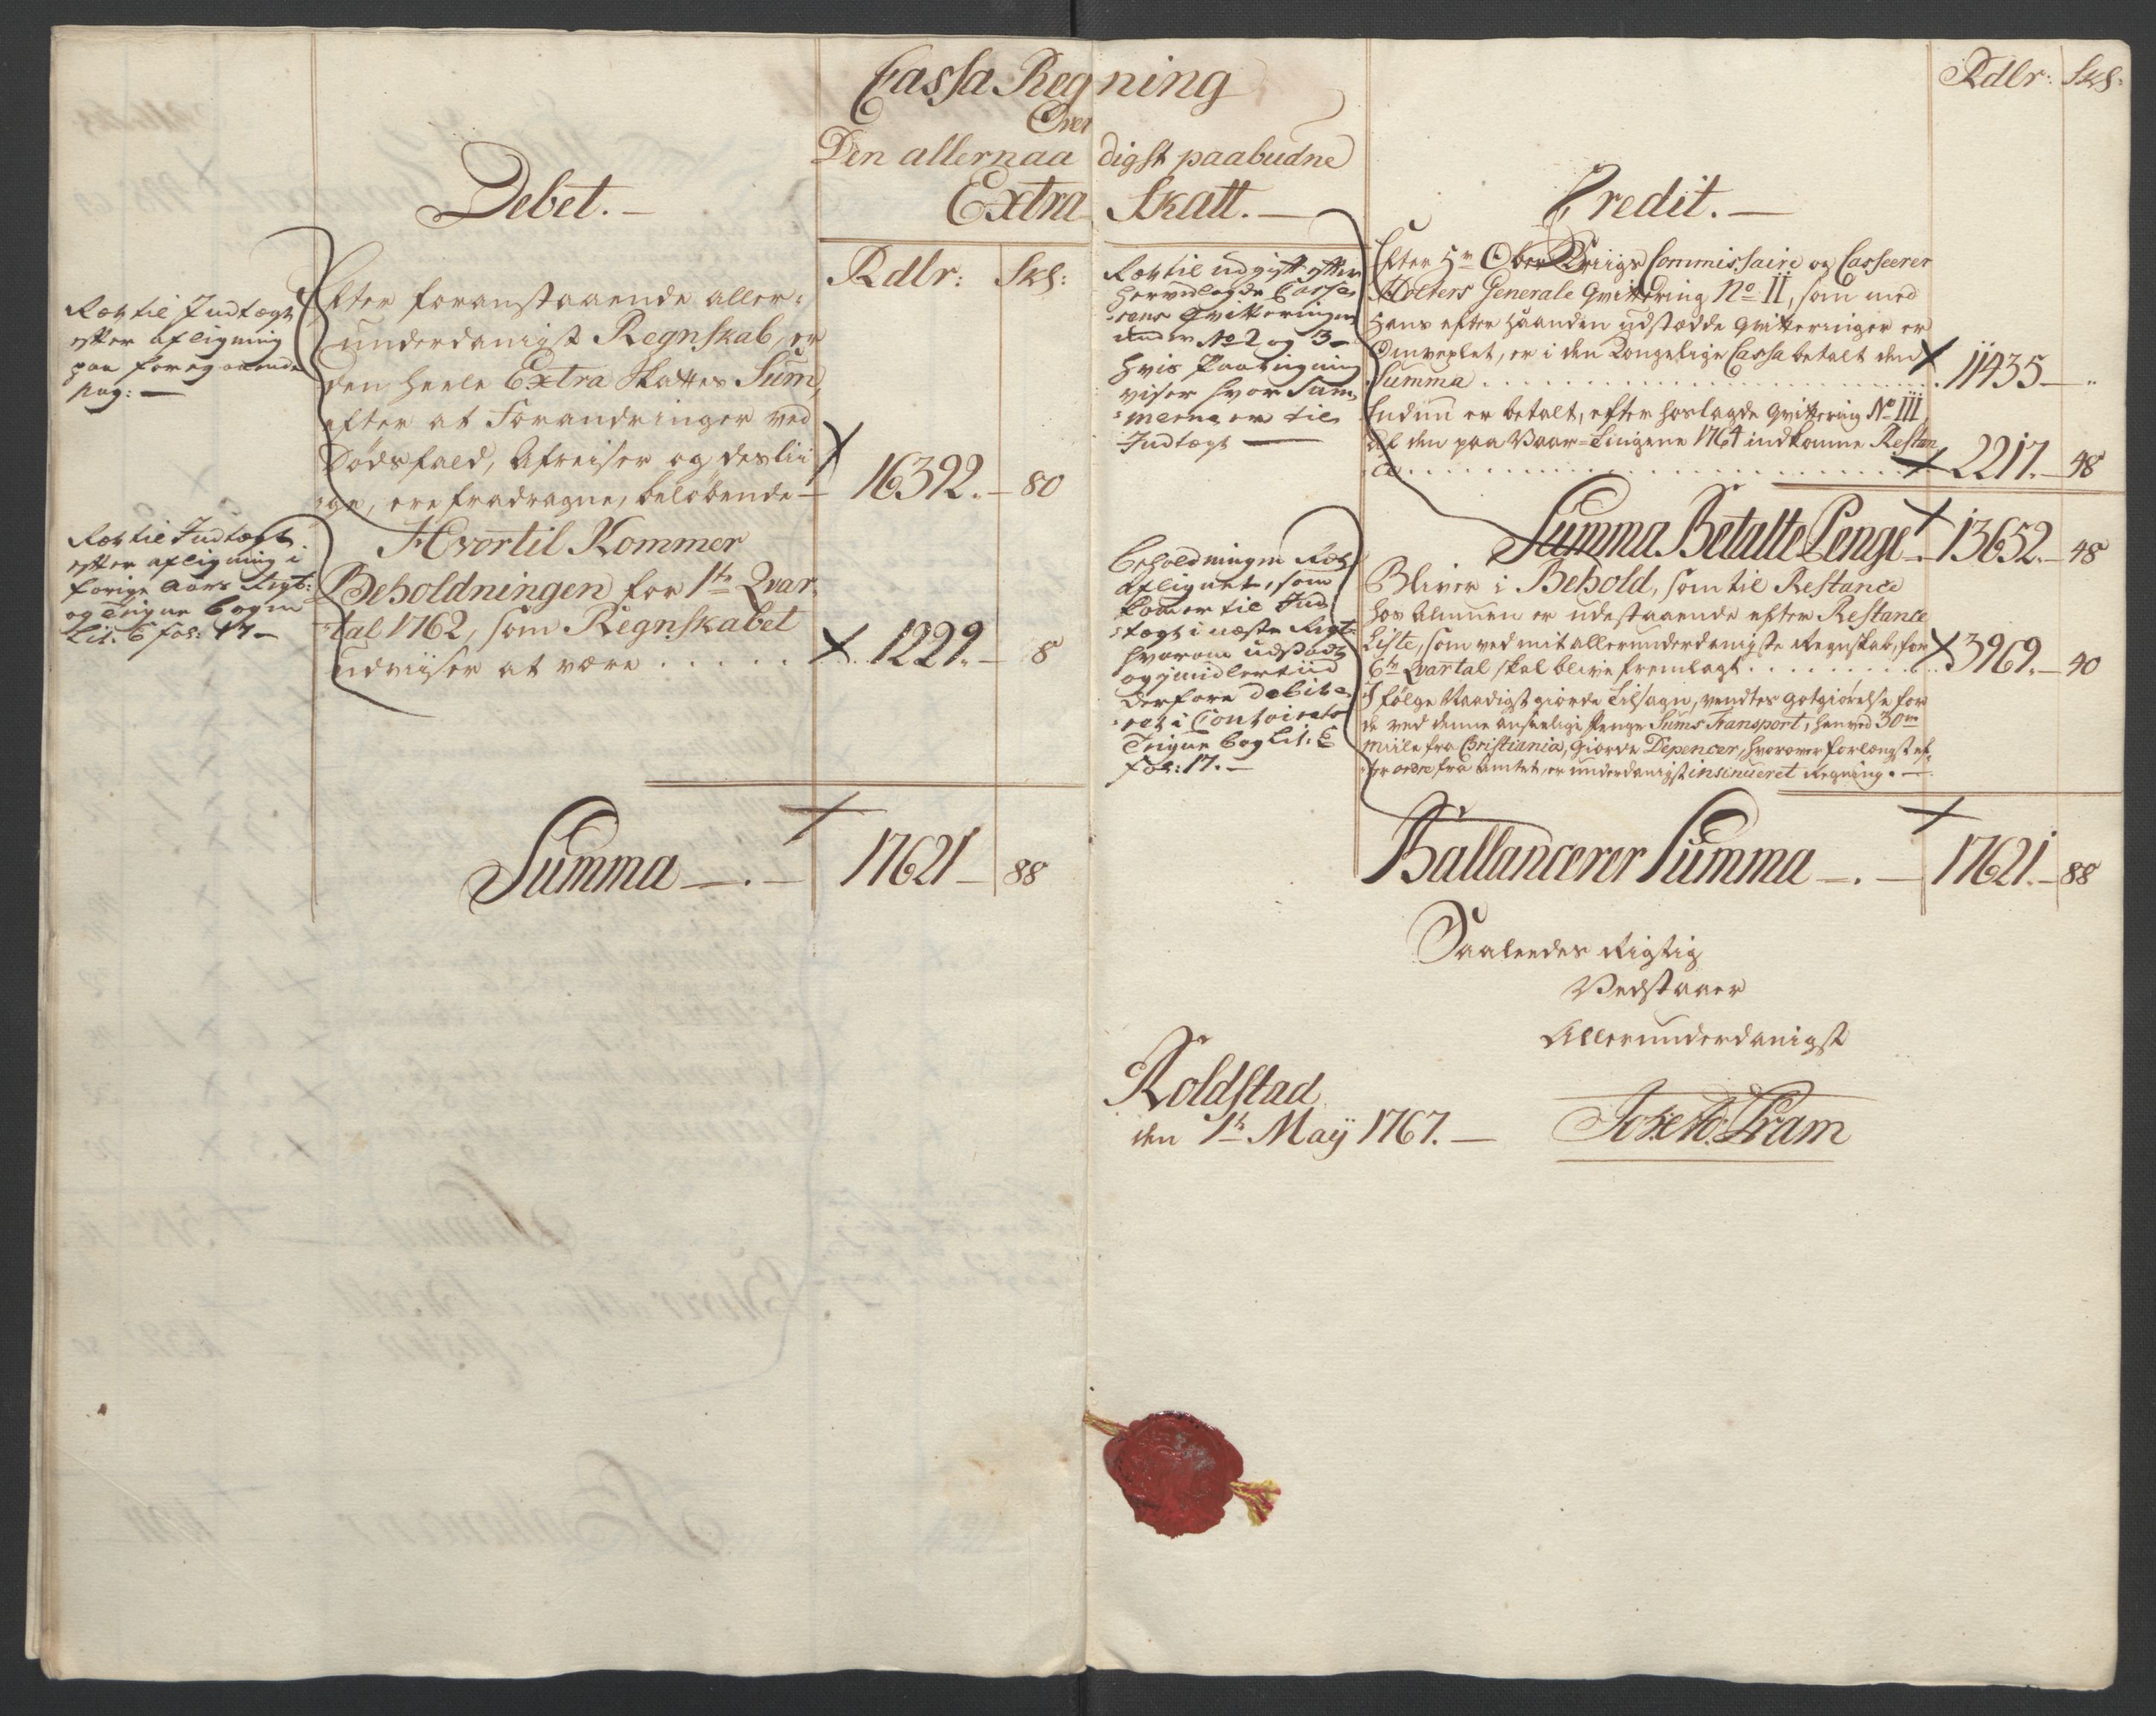 Cassa Regning
Over
Den allernaadigst paabudne
Extra Skatt.
Debet.
Rdlr: Sk:
Rigtig til Indtægt
efter afligning
paa foregaaende
pag:
Efter foranstaaende aller-
underdanigst Regnskab, er
den heele Extra Skattes Sum,
efter at Forandringer ved
Dødsfald, Afreiser og deslii
ge, ere fradragne, beløbende 16392. 80
Hvortil Kommer
til Indtægt
efter afligning i
forige Aars Regt:
og Bogen
Lit: E fol: 17
Beholdningen for 1te Qvar-
tal 1762, som Regnskabet
udviiser at være ..... 1229. 8
Summa 17621 88
Credit.
Rdlr: Sk:
til udgift efter
hervedlagde Casse-
rens Qvitteringer
under No 2 og 3
hvis Paategning
viser hvor Sum-
merne er til
Indtægt
Efter Hr Ober Kriigs Commissaire og Casserer
Holters Generale Qvittering No II, som med
Hans efter haanden udstædde Qvitteringer er
, er i den Kongelige Cassa betalt den
Summa ..... 11435 "
Endnu er betalt, efter hoslagde Qvittering No III
af den paa Vaar-Tingene 1764 indkomne Restan
ce ..... 2217. 48
Summa Betalte Penge 13652. 48
Beholdningen
aflignet, som
kommer til Ind-
tægt i næste Regt:
hvorom udstædt
og imidlertiid
derfore debite-
ret i Contoirets
Bog Lit: E
fol: 17.
Bliver i Behold, som til Restance
hos Almuen er udestaaende efter Restance
Liste, som ved mit allerunderdanigste Regnskab, for
6te Qvartal skal blive fremlagt ..... 3969. 40
I følge Naadigst giorde Tilsagn, ventes Gotgiørelse for
de ved denne anseelige Penge Sums Transport, henved 30ve
Miile fra Christiania, Giorde Depencer, hvorover forlængst ef-
ter ordre fra Amtet, er underdanigst insinueret Regning.
Ballancerer Summa 17621. 88
Saaleedes Rigtig
Vedstaaer
Allerunderdanigst
Koldstad
den 1te Maÿ 1767.
Pram